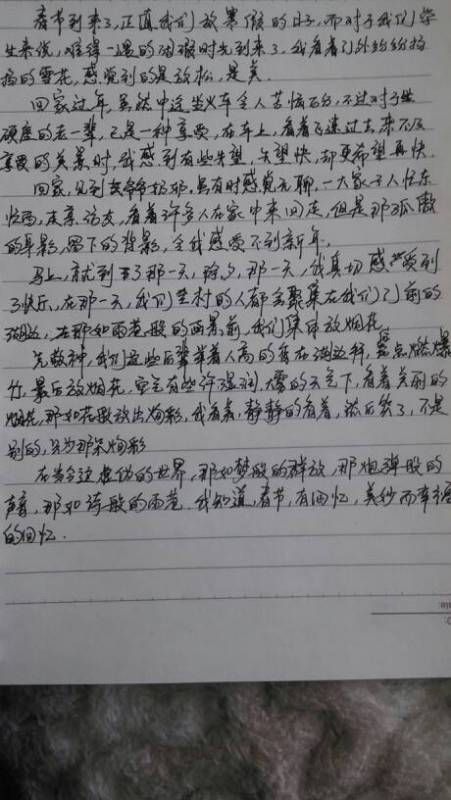 春节到来了,正值我们放寒假的日子,而对于我们学
生来说,难得一遇的闲暇时光到来了,我看着门外纷纷扬
扬的雪花,感受到的是放松,是爽
回家过年,虽然中途坐火车令人苦恼不已,不过对于坐
硬座的老一辈,已是一种享受,在车上,看着飞速过去,来不及
享受的美景时,我感到有些失望,失望快,却更希望再快.
回家,见到爷爷奶奶,虽有时感觉无聊,一大家子人忙东
忙西,走亲访友,看着许多人在家中来回走,但是那孤傲
的身影,留下的背影,令我感受不到新年,
马上,就到了那一天,除夕,那一天,我真切感受到
了快乐,在那一天,我们全村的人都会聚集在我们门前的
湖边,在那如雨巷般的两景前,我们集体放烟花
先敬神,我们这些后辈举着人高的香在湖边拜,点燃爆
竹,最后放烟花,空气有些许湿润,雪的天气下,看着美丽的
烟花,那如花般放出绚彩,我看着,静静的看着,然后笑了,不是
别的,只为那朵绚彩
在这虚伪的世界,那如梦般的鲜放,那炮弹般的
声音,那如诗般的雨巷,我知道,春节,有回忆,美妙而幸福
的回忆.